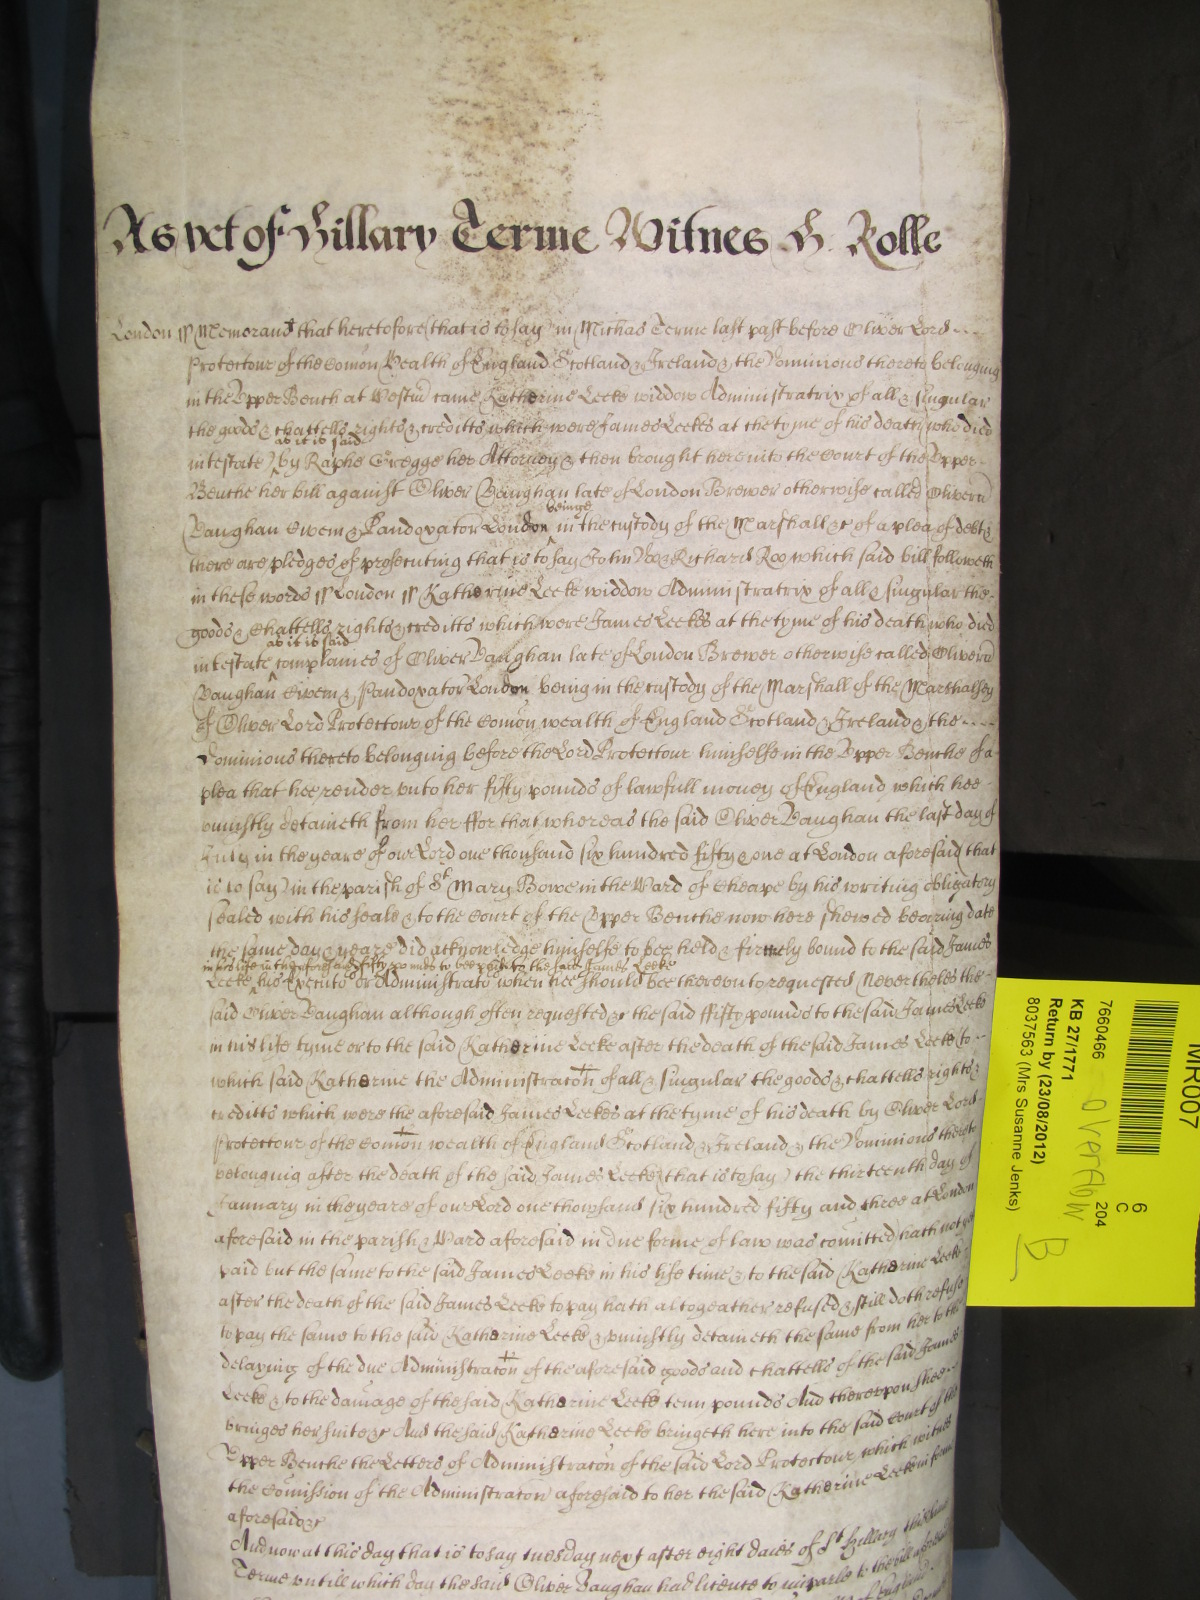 As yet of Hillary Terme Witnes H. Rolle
London ss Memorand that heretofore (that is to say) in Michas Terme last past before Oliver Lord
Protectour of the Comon Wealth of England Scotland & Ireland & the Dominions thereto belonging
in the Upper Bench at Westm came Katherine Leeke widdow Administratrix of all & singular
the goods & chattells rights & creditts which were James Leekes at the tyme of his death (who died
as it is said
intestate) by Raphe Gregge her Attorney & then brought here into the Court of the Upper
Benche her bill against Oliver Vaughan late of London Brewer otherwise called Oliveru
beinge
Vaughan Civem & Pandoxator London in the custody of the Marshall &c of a plea of debt &
there are pledges of prosecuting that is to say John Doo & Richard Roo which said bill followeth
in these words ss London ss Katherine Leeke widdow Administratrix of all & singular the
goods & Chattells rights & creditts which were James Leekes at the tyme of his death who died
as it is said
intestate complaines of Oliver Vaughan late of London Brewer otherwise called Oliveru
Vaughan Civem & Pandoxator London being in the custody of the Marshall of the Marshalsey
of Oliver Lord Protectour of the Comon wealth of England Scotland & Ireland & the
Dominions thereto belonging before the Lord Protectour himselfe in the Upper Benche of a
plea that hee render unto her fifty pounds of lawfull money of England which hee
uniustly detaineth from her ffor that whereas the said Oliver Vaughan the last day of
July in the yeare of our Lord one thousand six hundred fifty & one at London aforesaid that
is to say) in the parish of St Mary Bowe in the Ward of Cheape by his writing obligatory
sealed with his seale & to the Court of the Upper Benche now here shewed bearing date
the same day & yeare did acknowledge himselfe to bee held & firmely bound to the said James
in his life in the aforesaid fifty pounds to bee paid to the said James Leeke
Leeke his Executo or Administrato when hee should bee thereunto requested Nevertheles the
said Oliver Vaughan although often requested &c the said ffifty pounds to the said James Leeke
in his life tyme or to the said Katherine Leeke after the death of the said James Leeke (to
which said Katherine the Administracon of all & singular the goods & chattells rights &
creditts which were the aforesaid James Leekes at the tyme of his death by Oliver Lord
Protectour of the Comon wealth of England Scotland & Ireland & the Dominions thereto
belonging after the death of the said James Leeke (that is to say) the thirteenth day of
January in the yeare of our Lord one thowsand six hundred fifty and three at London
aforesaid in the parish & Ward aforesaid in due forme of law was comitted hath not yet
paid but the same to the said James Leeke in his life time & to the said Katherine Leeke
after the death of the said James Leeke to pay hath altogeather refused & still doth refuse
to pay the same to the said Katherine Leeke & uniustly detaineth the same from her to the
delaying of the due Administracon of the aforesaid goods and chattells of the said James
Leeke & to the damage of the said Katherine Leeke tenn pounds And thereupon shee
bringes her suite &c And the said Katherine Leeke bringeth here into the said Court of the
Upper Benche the Letters of Administracon of the said Lord Protectour which witnes
the Comission of the Administracon aforesaid to her the said Katherine Leeke in forme
aforesaid &c
And now at this day that is to say tuesday next after eight daies of St Hillary this same
Terme untill which day the said Oliver Vaughan had licence to imparle to the bill aforesaid
MR007
6
C
204
7660466
Overflow
KB 27/1771
Return by (23/08/2012)
8037563 (Mrs Susanne Jenks)
B